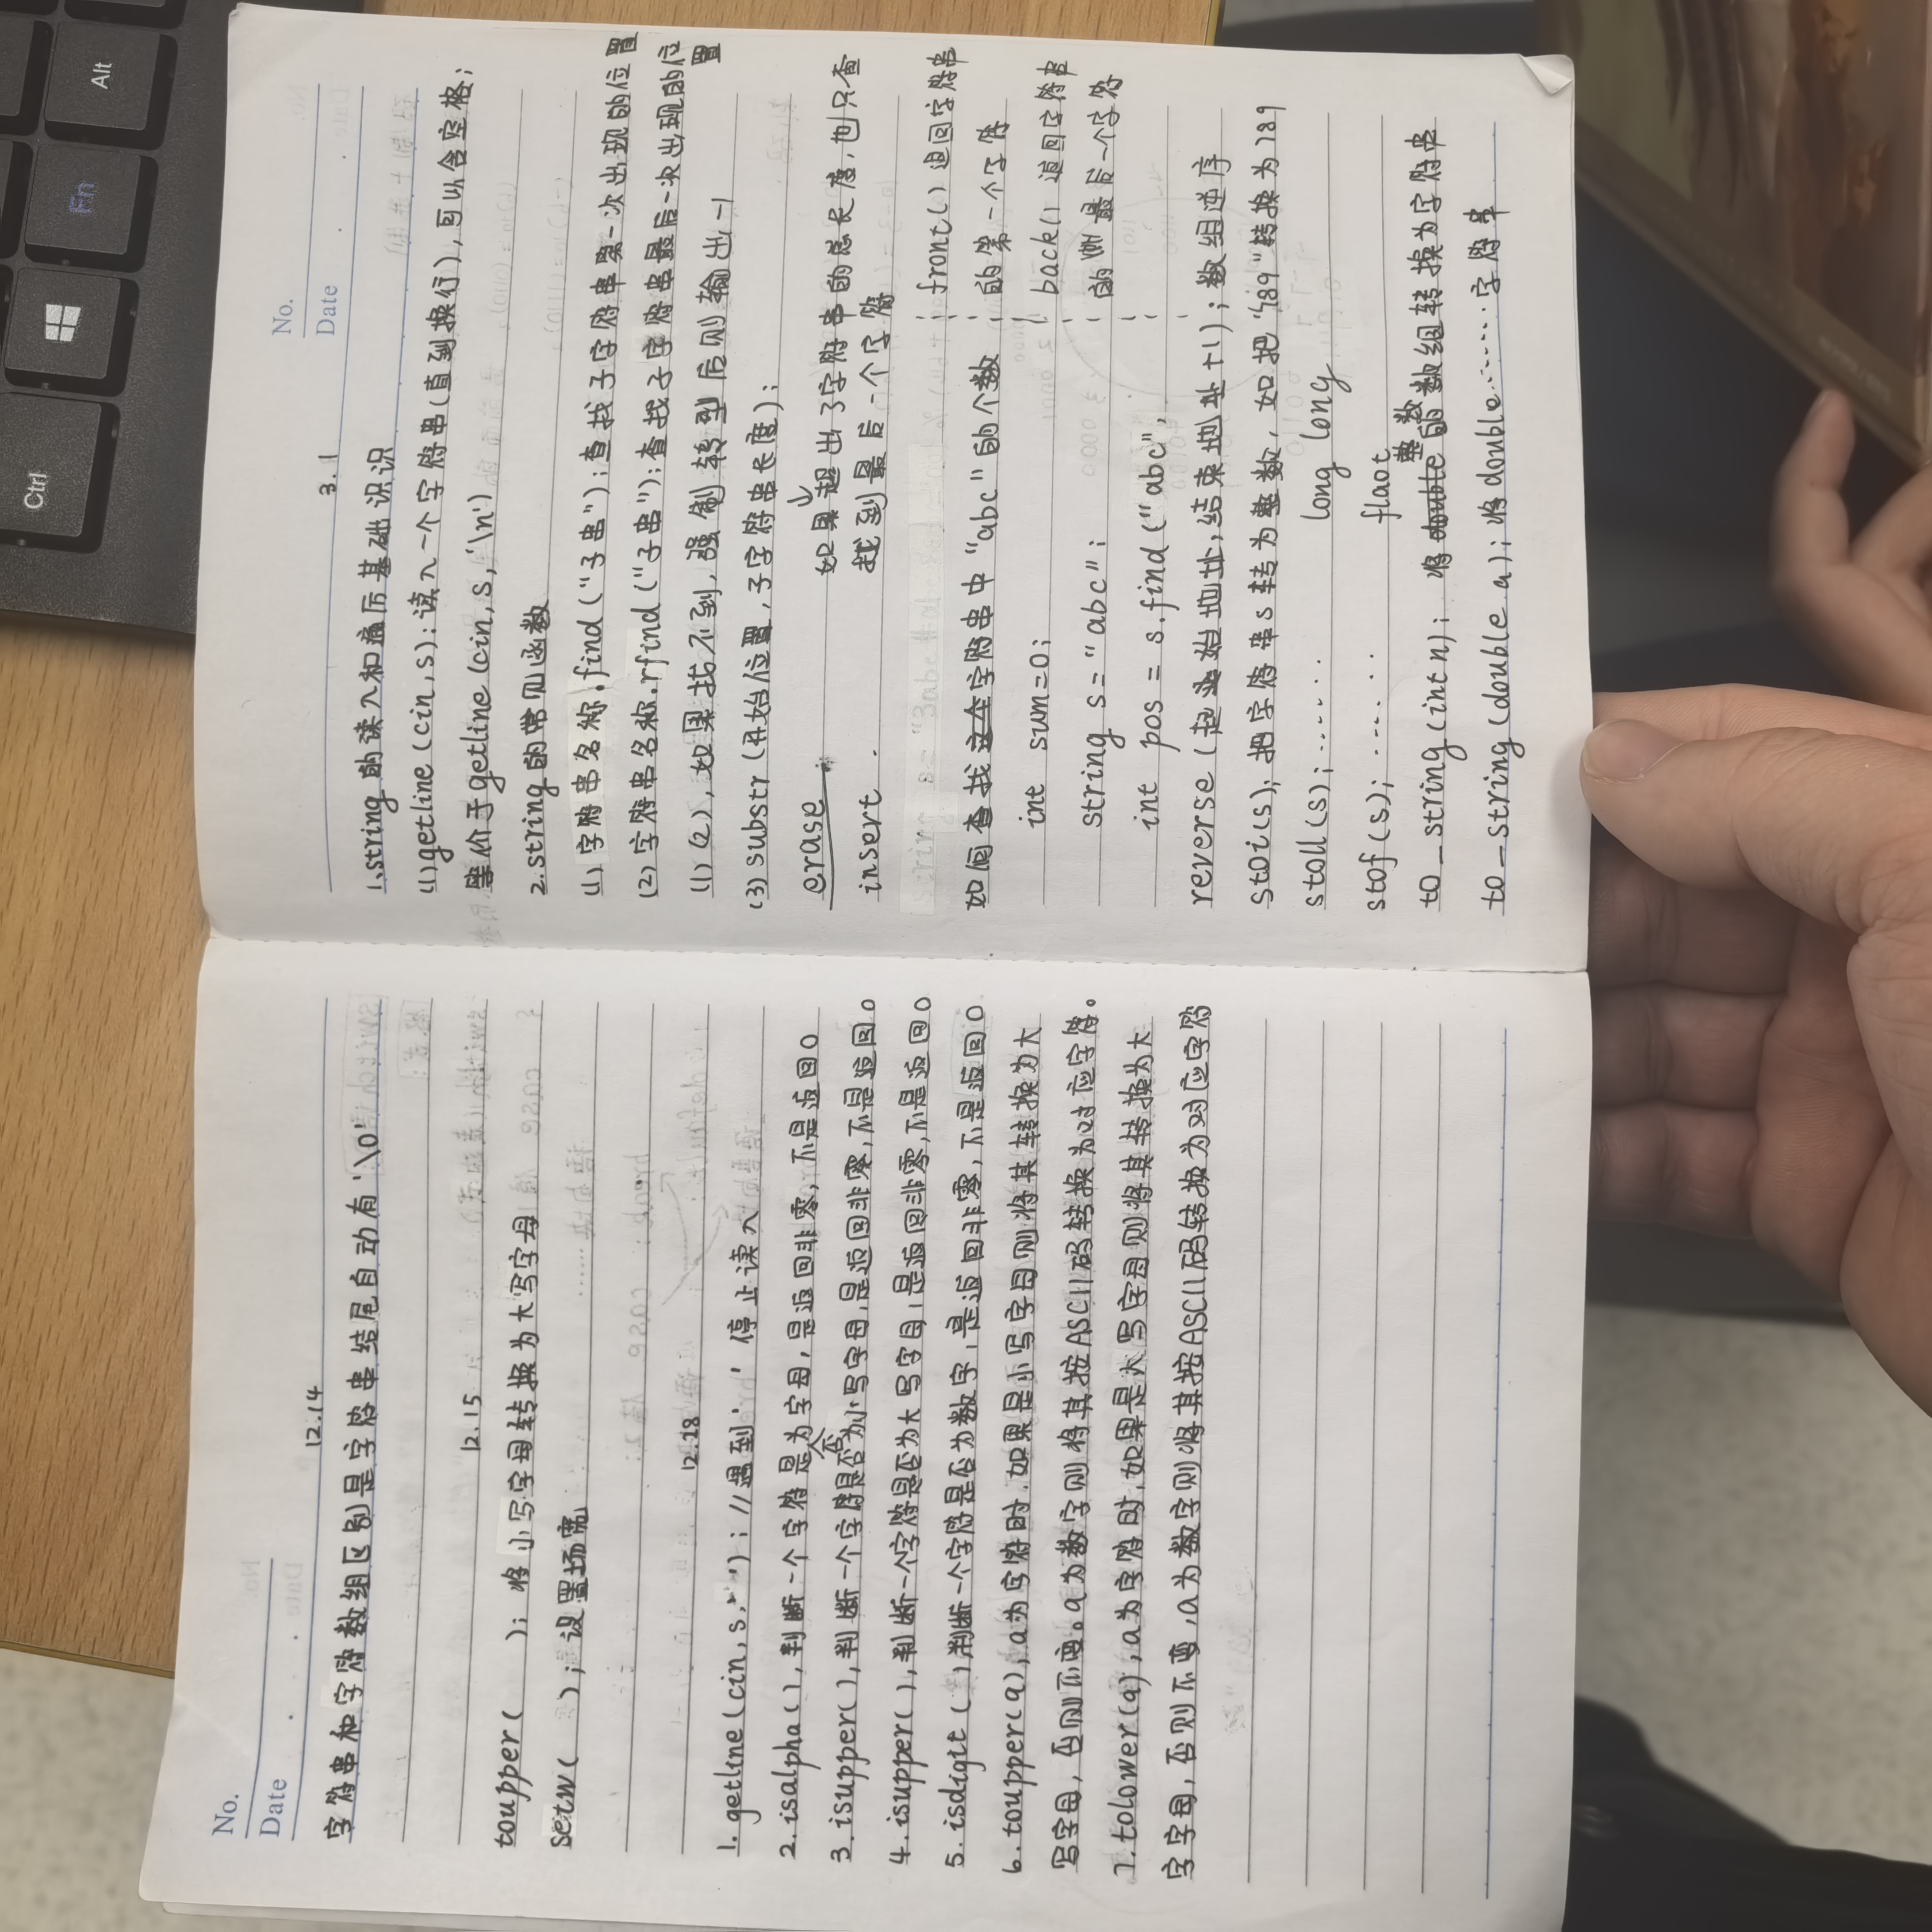 Alt
Fn
Ctrl
No.
Date
12.14
字符串和字符数组区别是字符串结尾自动有'\0'
12.15
toupper( ); 将小写字母转换为大写字母
setw( ); 设置场宽
12.28
1. getline(cin,s,'.'); //遇到'.'停止读入
2. isalpha(),判断一个字符是为字母,是返回非零,不是返回0
否
3. isupper(),判断一个字符是否为小写字母,是返回非零,不是返回0
4. isupper(),判断一个字符是否为大写字母,是返回非零,不是返回0
5. isdigit(),判断一个字符是否为数字,是返回非零,不是返回0
6. toupper(a),a为字符时.如果是小写字母则将其转换为大
写字母,否则不变。a为数字则将其按ASCII码转换为对应字符。
7. tolower(a),a为字符时,如果是大写字母则将其转换为大
字字母,否则不变,a为数字则将其按ASCII码转换为对应字符
No.
Date
3.1
1.string的读入和痛后基础识识
(1)getline(cin,s):读入一个字符串(直到换行),可以含空格;
等价于getline(cin,s,'\n')
2.string的常见函数
(1)字符串名称.find("子串");查找子字符串第一次出现的位置
(2)字符串名称.rfind("子串");查找子字符串最后一次出现的位
置
(1)(2),如果找不到,强制转型后则输出-1
(3)substr(开始位置,子字符串长度);
erase 如果超出了字符串的总长度,也只查
insert. 找到最后一个字符
front()返回字符串
如何查找这个字符串中"abc"的个数 的第一个字符
int sum=0; back()返回字符串
string s="abc"; 的最后一个字符
int pos = s.find("abc");
reverse(起始地址,结束地址+1);数组逆序
stoi(s);把字符串s转为整数,如把"789"转换为789
stoll(s);...... long long
stof(s);...... flaot
整数
to_string(int n); 将double的数组转换为字符串
to_string(double a);将double......字符串